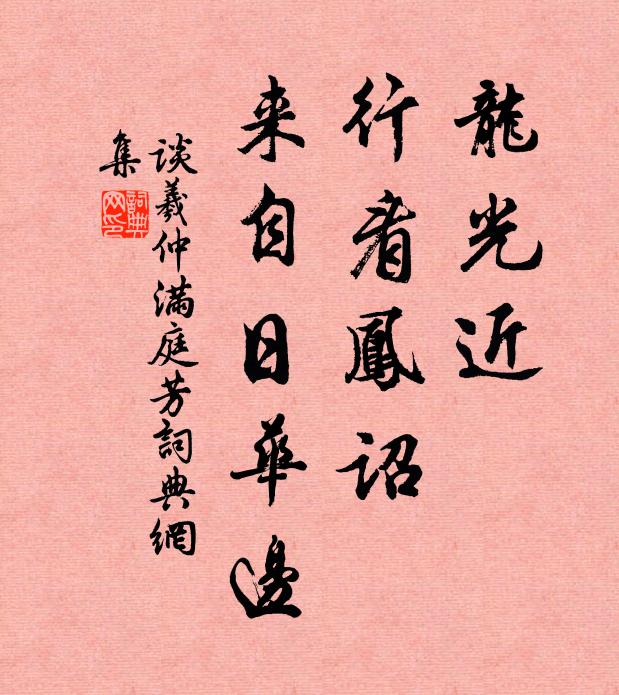 龍光近
行看鳳詔
来自日華邊
談羲仲滿庭芳詞典網
集
詞典網印